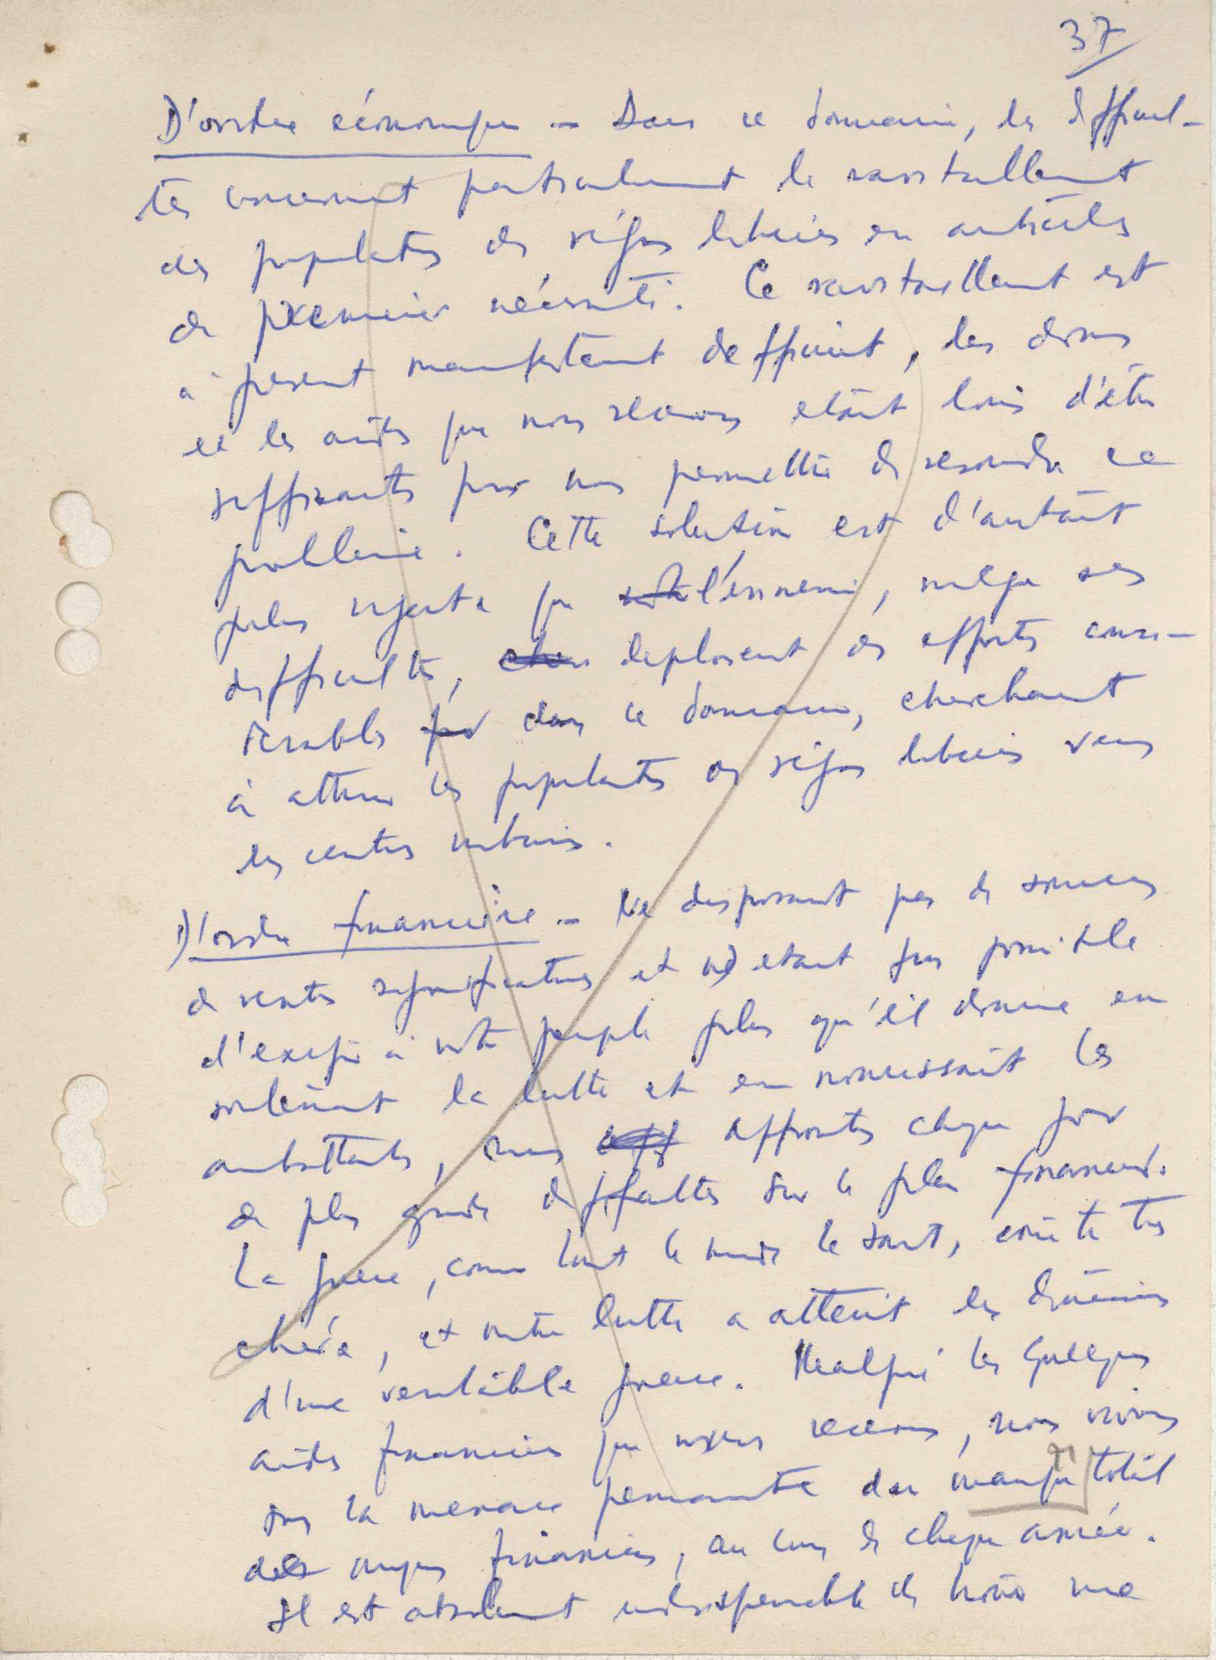 37
D'ordre économique — Dans ce domaine, les difficul-
tés concernent particulierement le ravitaillement
des populations des régions liberées en articles
de premiere nécessité. Ce ravitaillement est
à present manifestement defficient, les dons
et les aides que nous recevons etant loin d'être
suffisants pour nous permettre de resoudre ce
problleme. Cette solution est d'autant
plus urgente que l'ennemi, malgre ses
difficultés, deploient des efforts consi-
derables dans ce domaine, cherchant
à attirer les populations des régions liberées vers
les centres urbains.
D'ordre financière — Ne disposant pas de sources
de rentes significatives et n' etant pas possible
d'exiger à notre peuple plus qu'il donne en
soutenant la lutte et en nourrissant les
combattants, nous affrontons chaque jour
de plus grandes difficultés sur le plan financier.
La guerre, comme tout le monde le sait, coûte très
chère, et notre lutte a atteint les dimensions
d'une veritable guerre. Malgré les quelques
aides financières que nous recevons, nous vivons
sous la menace permanente du manque total
des moyens financiers, au cours de chaque année.
Il est absolument indispensable de trouver une